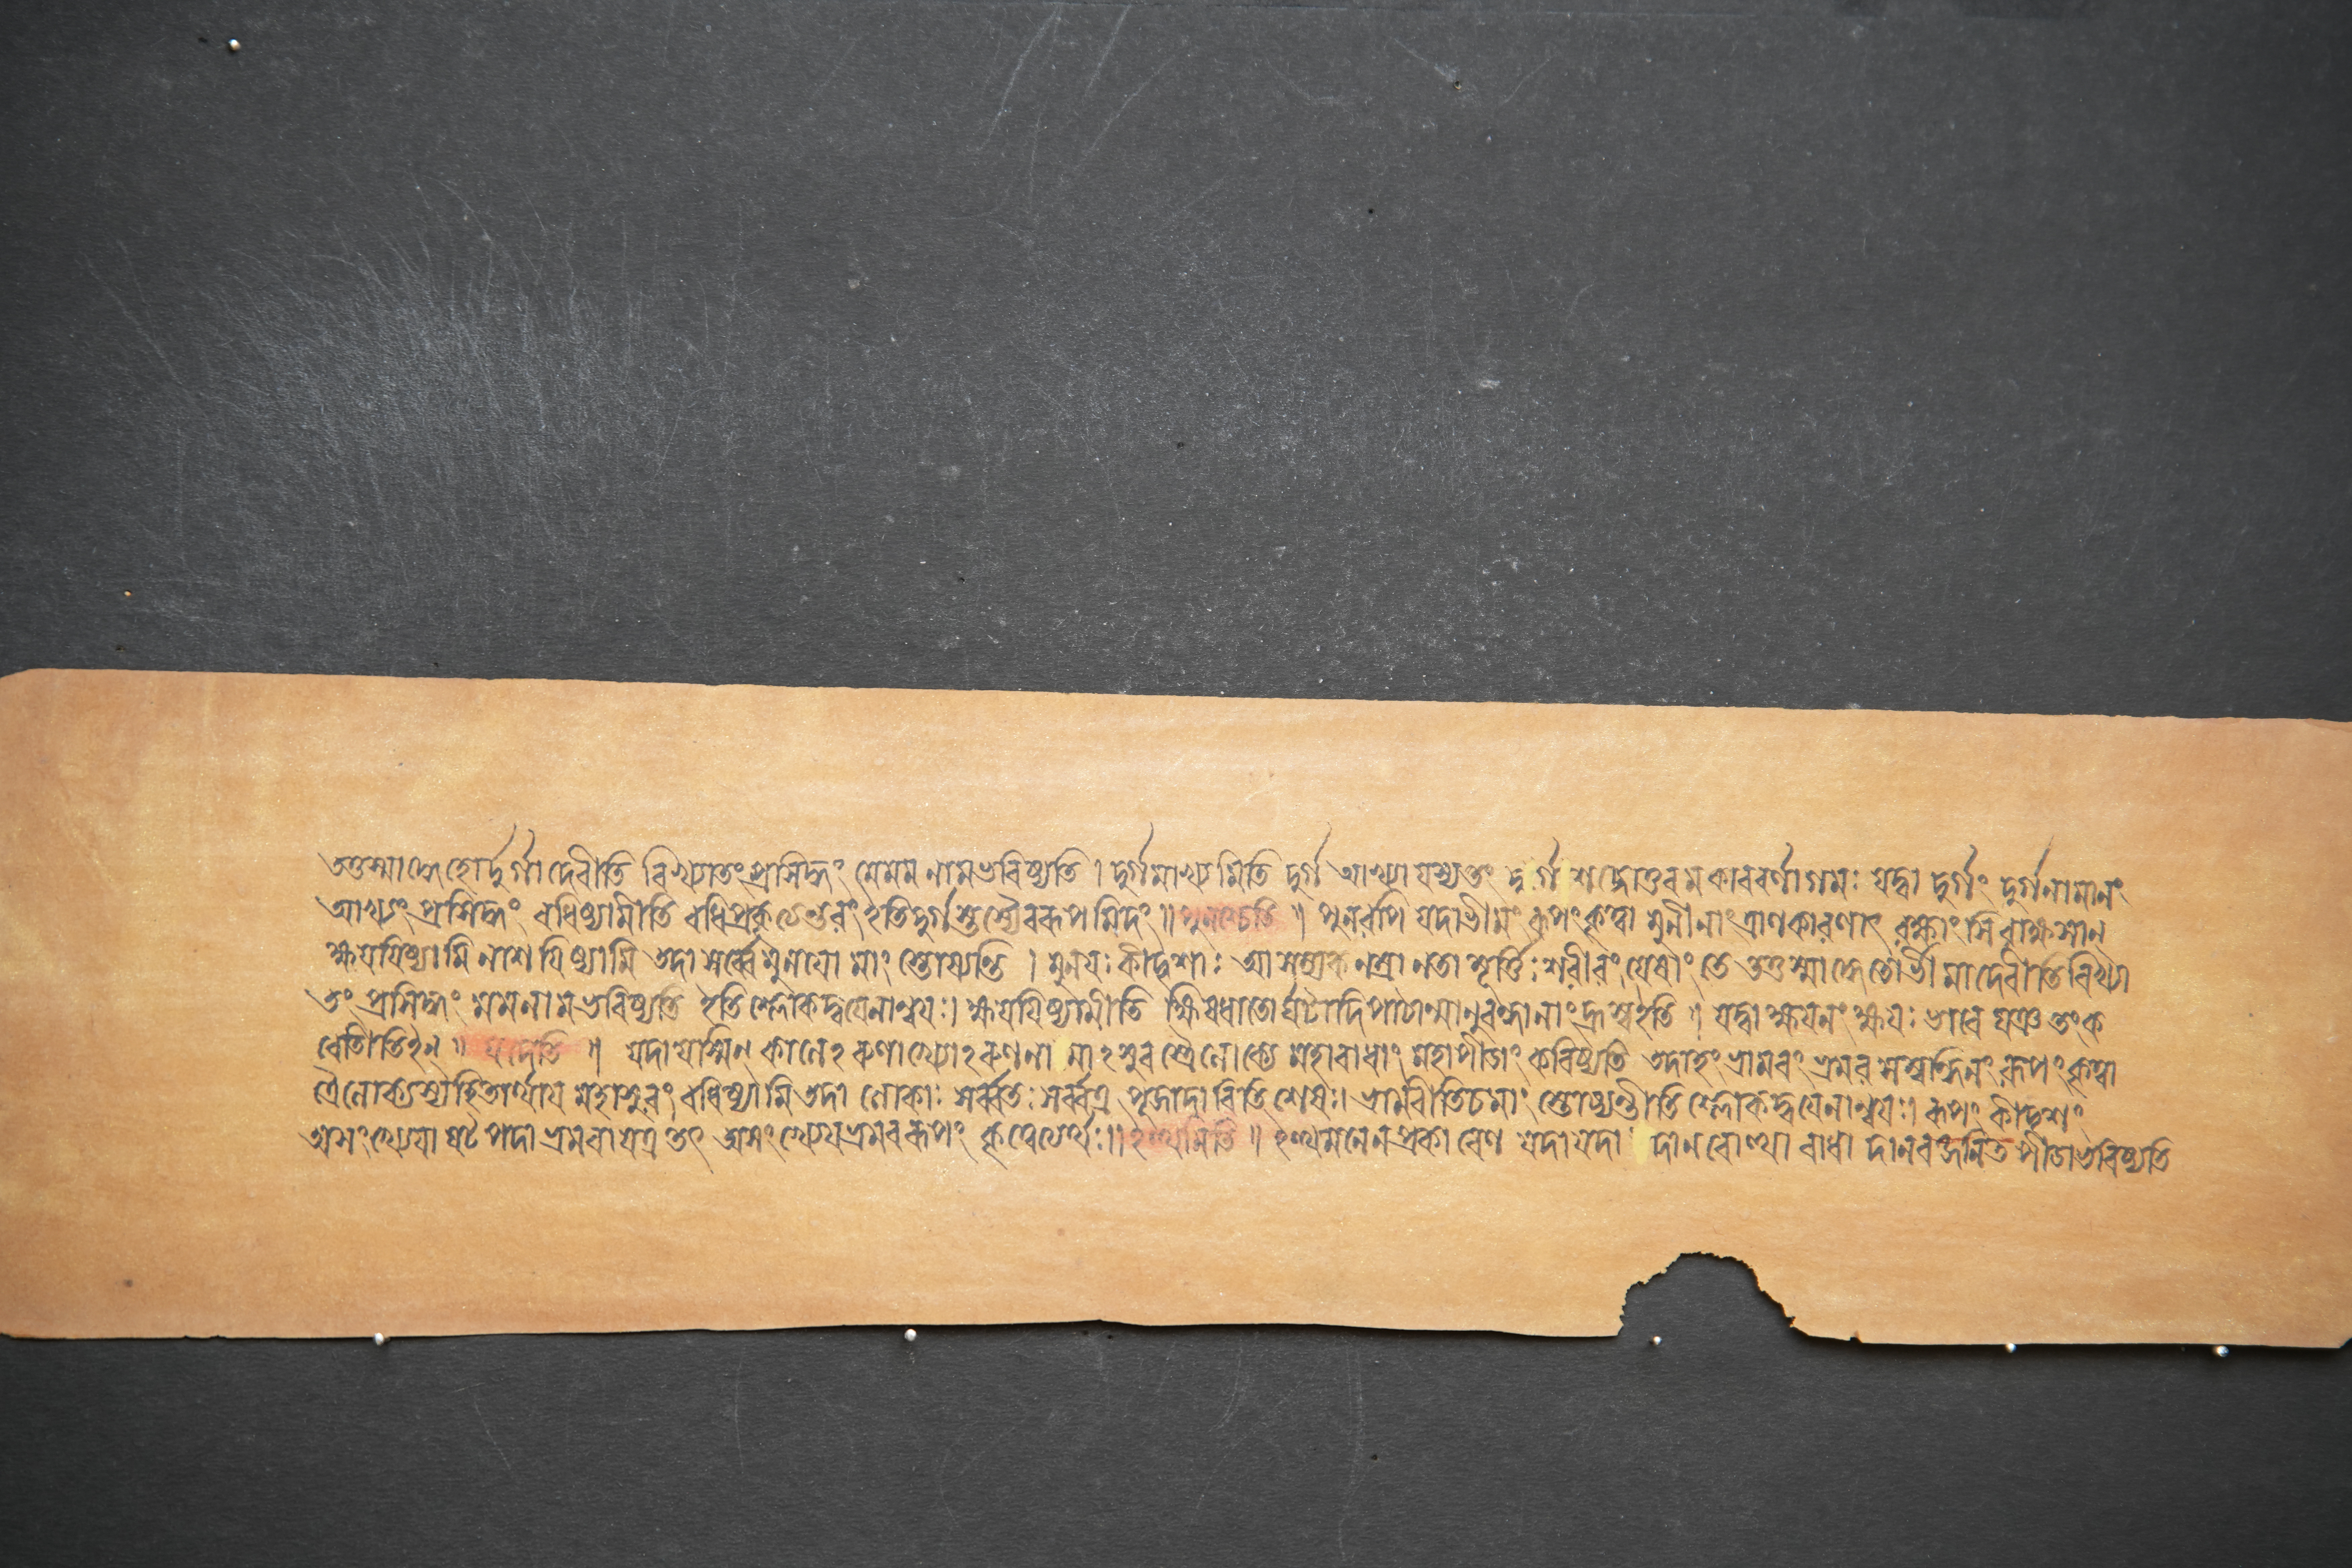 তত্তস্মাদ্ধেতোর্দুর্গাদেবীতি বিখ্যাতং প্রসিদ্ধং মে মম নাম ভবিষ্যতি । দুর্গমাখ্যমিতি দুর্গ আখ্যা যস্য তং দুর্গশব্দোত্তরমকারবর্ণাগমঃ যদ্বা দুর্গং দুর্গনামানং
আখ্যং প্রসিদ্ধং বধিষ্যামীতি বধিপ্রকৃত্যন্তরং ইতিদুর্গ রূপমিদং ॥ পুনশ্চেতি ॥ পুনরপি যদাভীমং রূপং কৃত্বা মুনীনাং ত্রাণকারণাৎ রক্ষাংসি রাক্ষসান্
ক্ষয়যিষ্যামি নাশযিষ্যামি তদা সর্ব্বে মুনয়ো মাং স্তোষ্যন্তি । মুনয়ঃ কীদৃশাঃ আনম্র নতা মূর্ত্তিঃ শরীরং যেষাং তে তত্তস্মাদ্ধেতোর্ভীমাদেবীতি বিখ্যা
তং প্রসিদ্ধং মম নাম ভবিষ্যতি ইতি শ্লোকদ্বয়েনান্বয়ঃ । ক্ষয়যিষ্যামীতি ক্ষিষধাতোর্ঘটাদিপাঠান্মানুবন্ধানাং হ্রস্ব ইতি । যদ্বা ক্ষয়নং ক্ষয়ঃ ভাবে ঘঞ্ তং ক
রোতীতি ইন্ ॥ যদেতি ॥ যদা যস্মিন্ কালেঽরুণাখ্যোঽরুণনামাঽসুরস্ত্রৈলোক্যে মহাবাধাং মহাপীডাং করিষ্যতি তদাহং ভ্রামরং ভ্রমরসম্বন্ধিনং রূপং কৃত্বা
ত্রৈলোক্যস্য হিতার্থায় মহাসুরং বধিষ্যামি তদা লোকাঃ সর্ব্বতঃ সর্ব্বত্র পূজাদাবিতি শেষঃ । ভ্রামরীতি চ মাং স্তোষ্যন্তীতি শ্লোকদ্বয়েনান্বয়ঃ । রূপং কীদৃশং
অসংখ্যেয়া ষট্পদা ভ্রমরা যত্র তৎ অসংখ্যেয়ভ্রমররূপং কৃত্বেত্যর্থঃ ॥ ইত্থমিতি ॥ ইত্থমনেন প্রকারেণ যদা যদা দানবোত্থা বাধা দানবজনিত পীডা ভবিষ্যতি